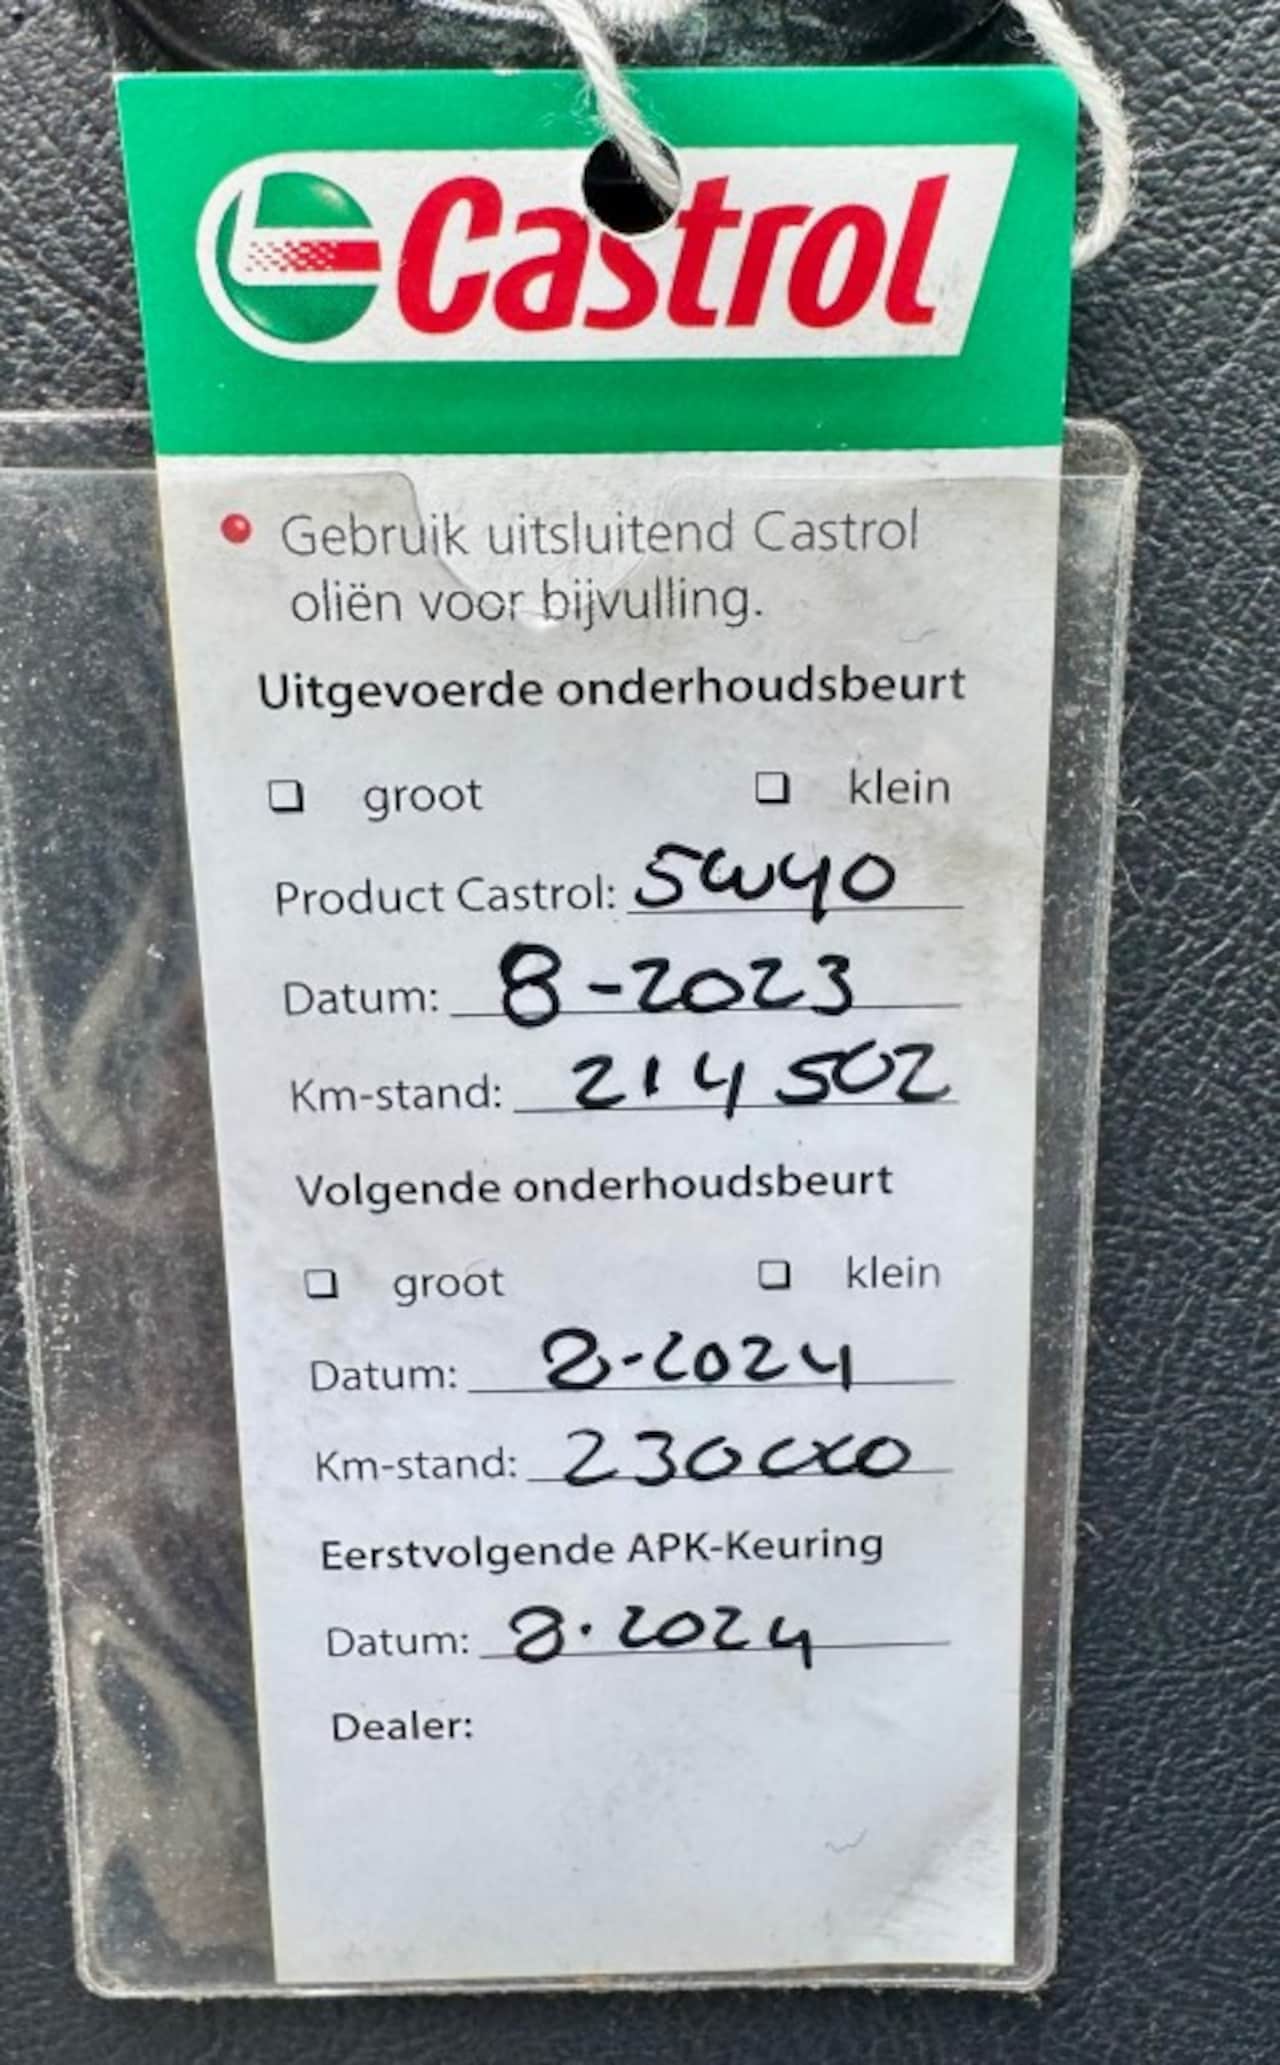 Castrol
Gebruik uitsluitend Castrol
oliën voor bijvulling.
Uitgevoerde onderhoudsbeurt
groot klein
Product Castrol: 5W40
Datum: 8-2023
Km-stand: 214 502
Volgende onderhoudsbeurt
groot klein
Datum: 8-2024
Km-stand: 230000
Eerstvolgende APK-Keuring
Datum: 8.2024
Dealer: